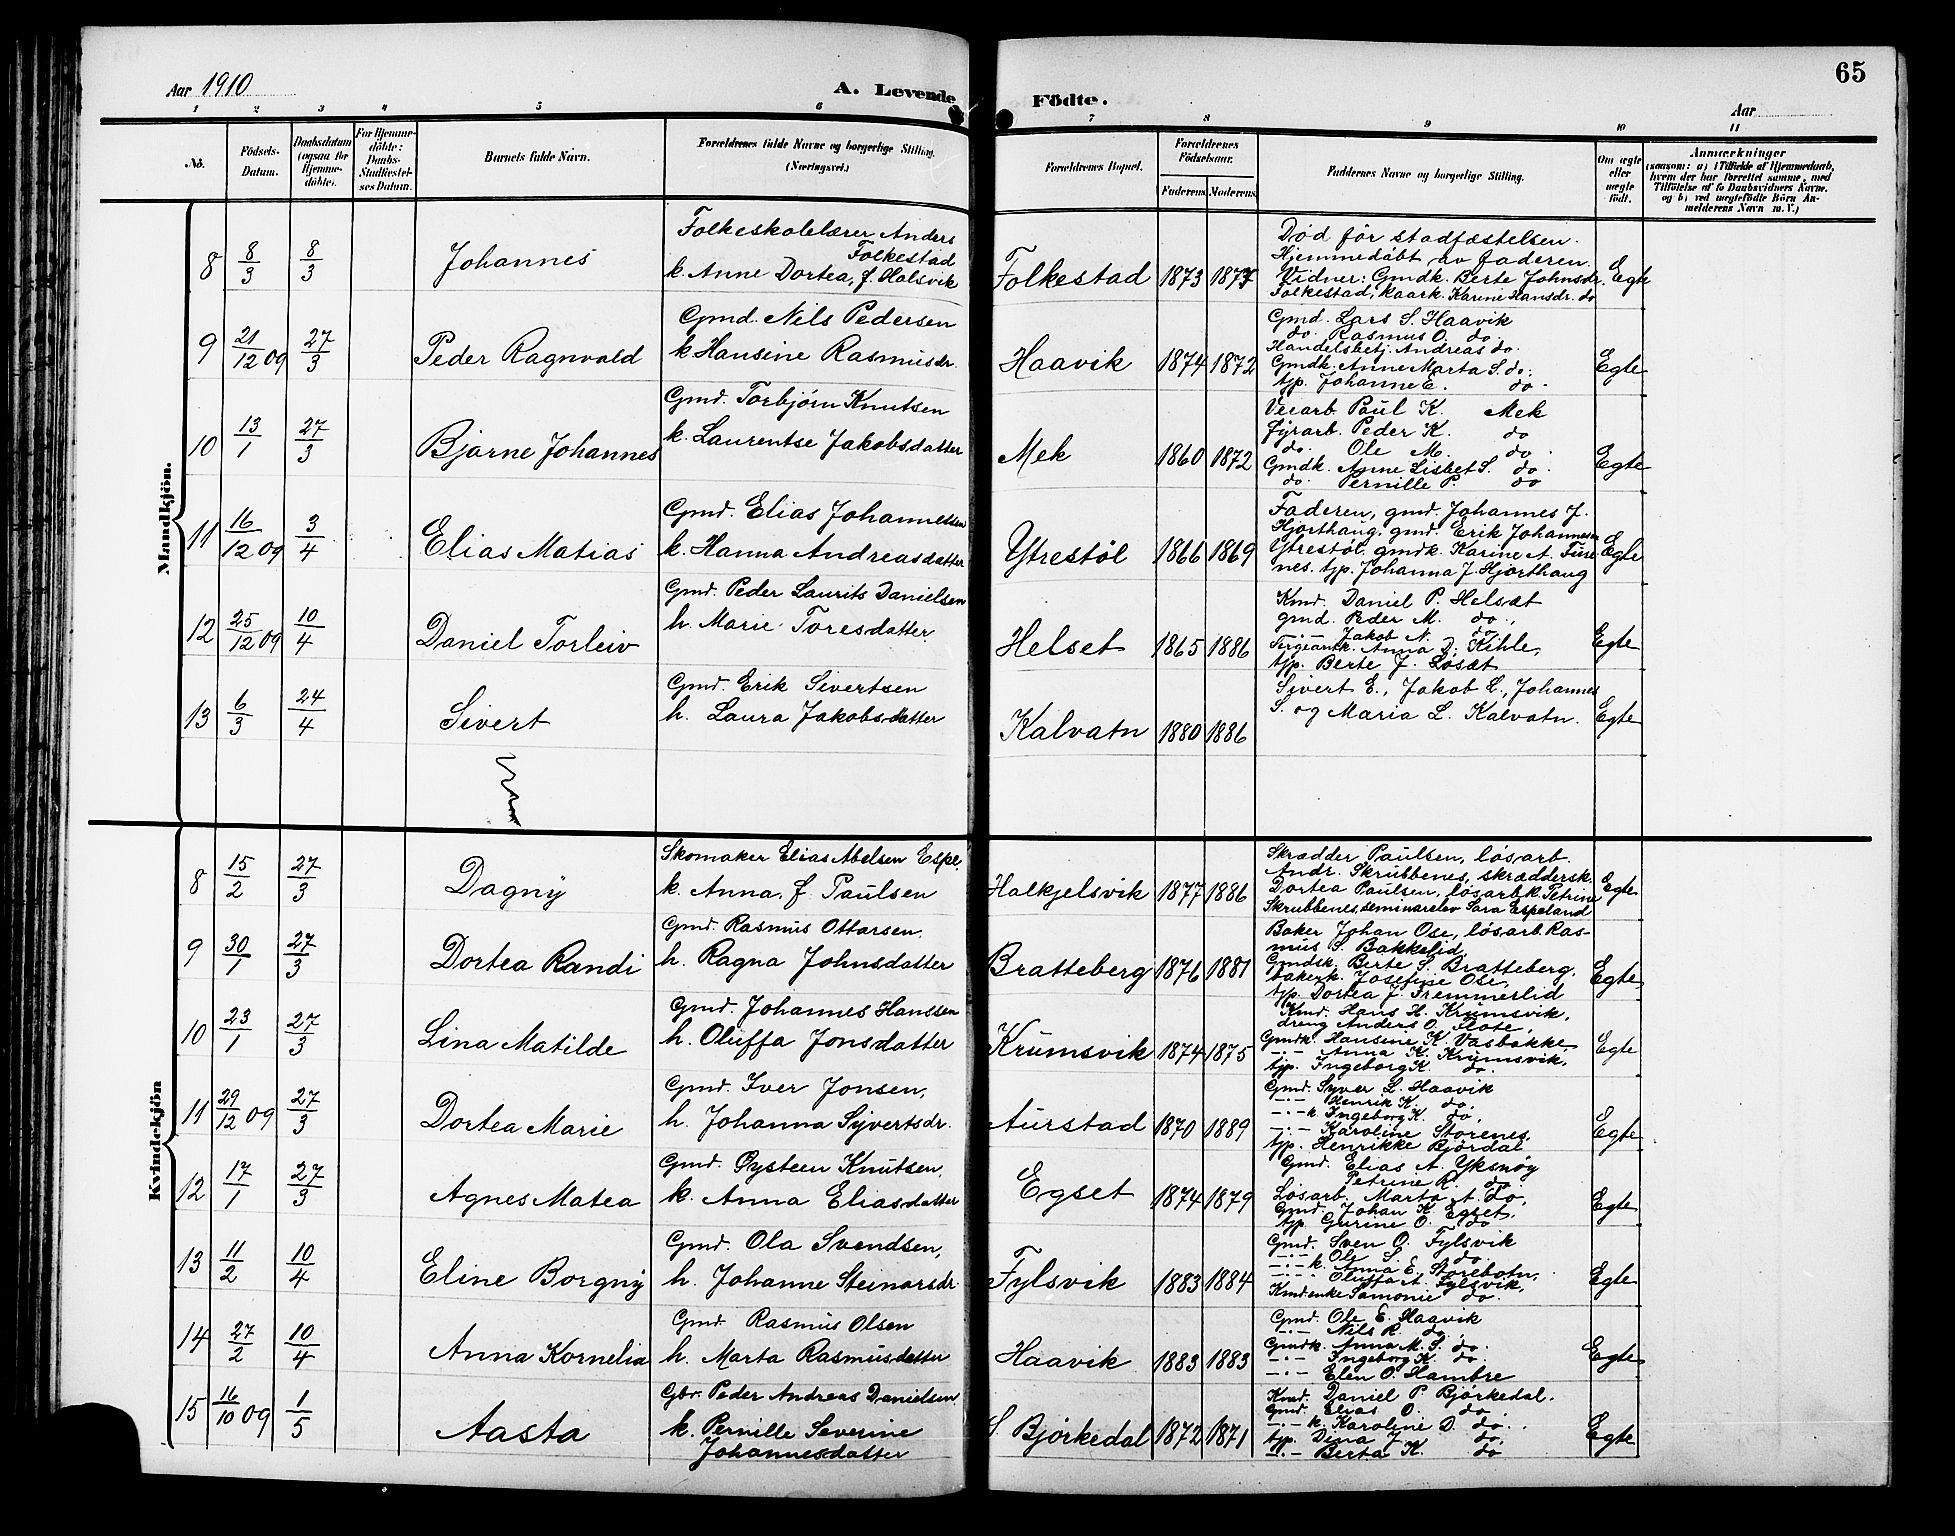 65
Aar 1910
A. Levende Födte.
Aar
1 2 3 4 5 6 7 8 9 10 11
No.
Födsels-Datum.
Daabsdatum (ogsaa for Hjemmedöbte).
For Hjemmedöbte: Daabs-Stadfæstelses Datum.
Barnets fulde Navn.
Forældrenes fulde Navne og borgerlige Stilling. (Næringsvei.)
Forældrenes Bopæl.
Forældrenes Födselsaar.
Faderens. Moderens.
Faddernes Navne og borgerlige Stilling.
Om ægte eller uægte födt.
Anmærkninger
(saasom: a) i Tilfælde af Hjemmedaab, hvem der har forrettet samme, med Tilföielse af to Daabsvidners Navne. og b) ved uægtefödte Börn Anmelderens Navn m. V.)
Mandkjön.
8 8/3 8/3 Johannes
Folkeskolelærer Anders
Folkestad
k. Anne Dortea, f. Halsvik
Folkestad 1873 1877
Död før stadfæstelsen.
Hjemmedøbt av faderen.
Vidner: Gmdk. Berte Johnsdr.
Folkestad, kaark. Karine Hansdr. do
Egte
9 21/12 09 27/3 Peder Ragnvald
Gmd. Nils Pedersen
k. Hansine Rasmusdr.
Haavik 1874 1872
Gmd. Lars S. Haavik
do. Rasmus O. do
Handelsbetj. Andreas do.
Gmdk. Anne Marta S. do.
tjp. Johanne E. do.
Egte
10 13/1 27/3 Bjarne Johannes
Gmd. Torbjørn Knutsen
k. Laurentse Jakobsdatter
Mek 1860 1872
Veiarb. Paul K. Mek
Fyrarb. Peder K. do
do. Ole M. do.
Gmdk. Anne Lisbet S. do.
do. Pernille P. do
Egte
11 16/12 09 3/4 Elias Matias
Gmd. Elias Johannessen
k. Hanna Andreasdatter
Ytrestøl 1866 1869
Faderen, gmd. Johannes J.
Hjorthaug, gmd. Erik Johannessen
Ytrestøl, gmdk. Karine A. Fure
nes. tjp. Johanna J. Hjorthaug
Egte
12 25/12 09 10/4 Daniel Torleiv
Gmd. Peder Laurits Danielsen
h. Marie Toresdatter
Helset 1865 1886
Kmd. Daniel P. Helsæt
gmd. Peder M. do.,
-·- Jakob N. do.
Anna D. Kihle,
tjp. Berte J. Løsæt
Egte
13 6/3 24/4 Sivert
Gmd. Erik Sivertsen
h. Laura Jakobsdatter
Kalvatn 1880 1886
Sivert E., Jakob L., Johannes
S. og Maria L. Kalvatn.
Egte
Kvindekjön
8 15/2 27/3 Dagny
Skomaker Elias Abelsen Espe.
k. Anna, f. Paulsen
Halkjelsvik 1877 1886
Skrædder Paulsen, løsarb.
Andr. Skrubbenes, skræddersk.
Dortea Paulsen, løsarbk. Petrine
Skrubbenes, seminarelev Sara Espeland
Egte
9 30/1 27/3 Dortea Randi
Gmd. Rasmus Ottarsen.
h. Ragna Johnsdatter
Bratteberg 1876 1881
Baker Johan Ose, løsarb. Ras-
mus S. Bakkelid,
Gmdsk. Berte S. Bratteberg,
bakerk. Josefine Ose,
tjp. Dortea J. Fremmerlid
Egte
10 23/1 27/3 Lina Matilde
Gmd. Johannes Hanssen
h. Oluffa Jonsdatter
Krumsvik 1874 1875
Kmd. Hans H. Krumsvik,
dreng Anders O. Flote,
Gmdk. Hansine K. Vasbakke,
-·- Anna K. Krumsvik,
tjp. Ingeborg K. do.
Egte
11 29/12 09 27/3 Dortea Marie
Gmd. Iver Jonsen,
h. Johanna Syvertsdr.
Aurstad 1870 1889
Gmd. Syver L. Haavik
-·- Henrik K. do,
-·- k. Ingeborg K. do,
-·- Karoline Storenes,
tjp. Henrikke Bjørdal
Egte
12 17/1 27/3 Agnes Matea
Gmd. Øysteen Knutsen,
k. Anna Eliasdatter
Egset 1874 1879
Gmd. Elias A. Yksnøy
Petrine R. do
Løsarb. Marta A. do,
Gmd. Johan K. Egset,
tjp. Gurine O. do
Egte
13 11/2 10/4 Eline Borgny
Gmd. Ola Svendsen,
h. Johanne Steinarsdr.
Fylsvik 1883 1884
Gmd. Sven O. Fylsvik
-·- Ole S. do.
-·- k. Anna E. Storebotn,
-·- Oluffa A. Fylsvik,
Kmdenke Samonie do.
Egte
14 27/2 10/4 Anna Kornelia
Gmd. Rasmus Olsen
h. Marta Rasmusdatter
Haavik 1883 1883
Gmd. Ole E. Haavik
-·- Nils R. do.
Gmdk. Anna M. S. do.
-·- Ingeborg K. do.
-·- Elen O. Hambre
Egte
15 16/10 09 1/5 Aasta
Gbr. Peder Andreas Danielsen
k. Pernille Severine
Johannesdatter
S. Bjørkedal 1872 1871
Kmd. Daniel P. Bjørkedal.
Gmd. Elias O. do.
-·- k. Karoline D. do.
tjp. Dina J. do.
-"- Berta K. do
Egte